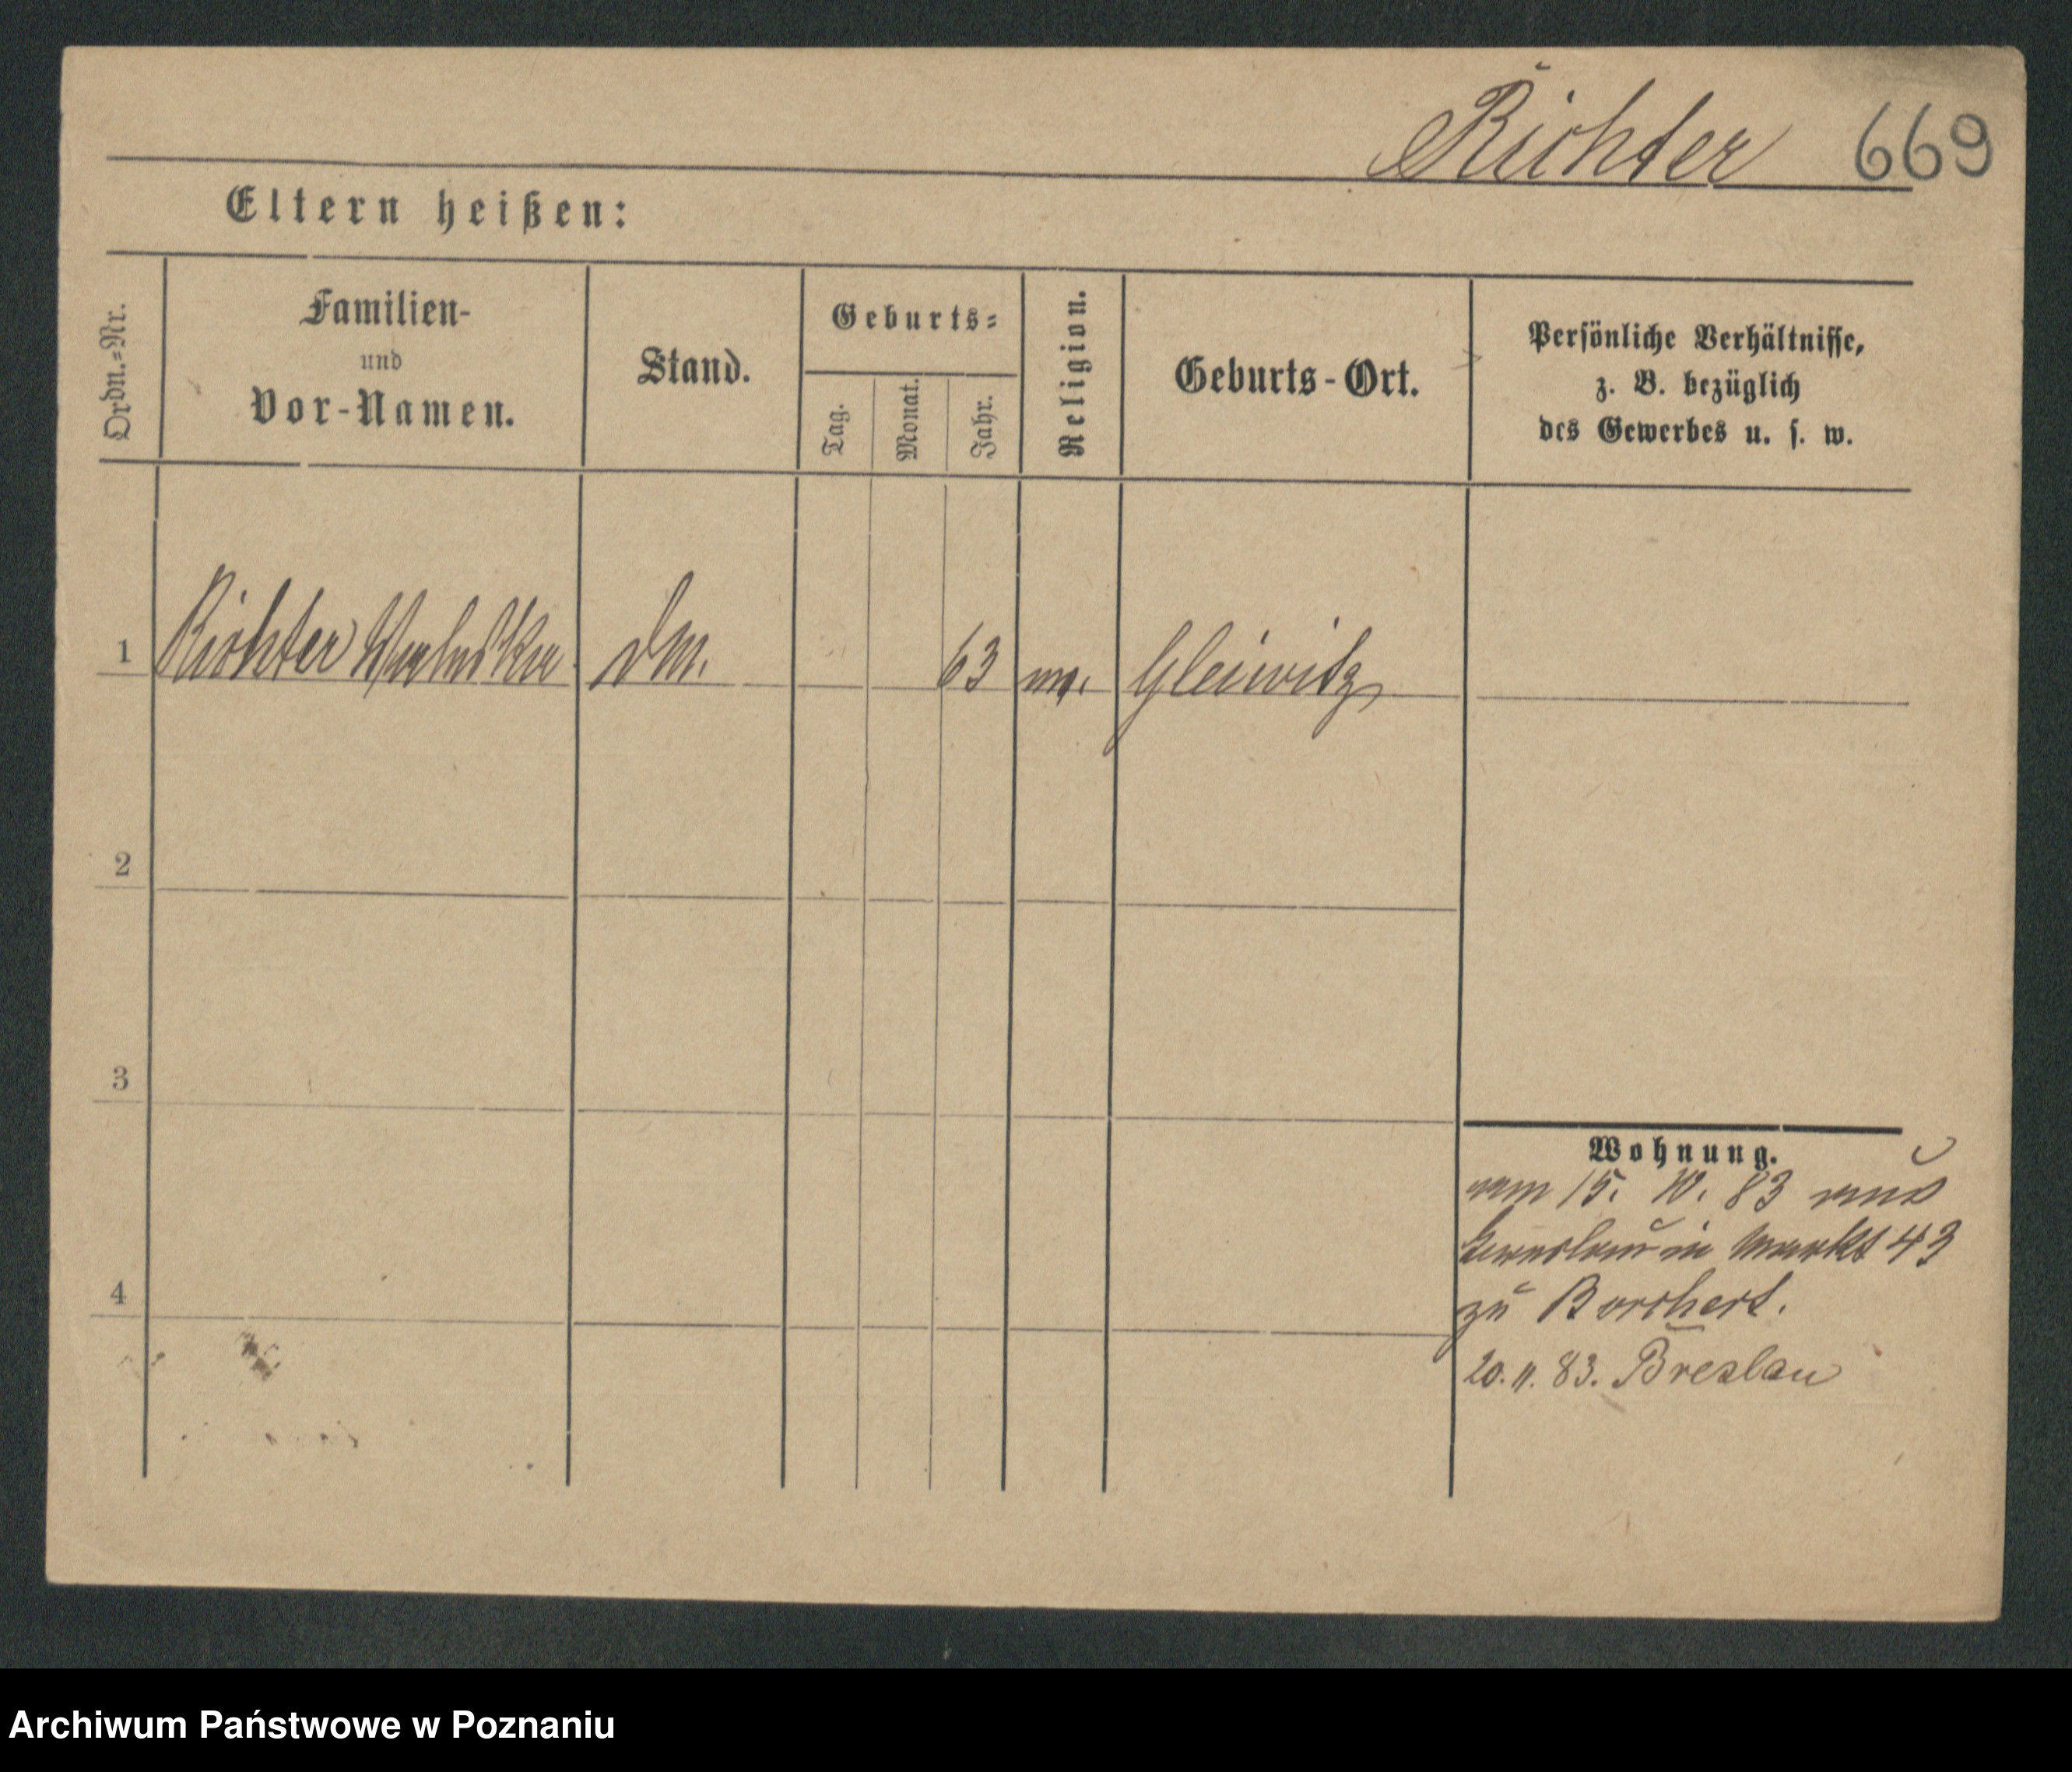 Richter 669
Eltern heißen:
Ordn.=Nr.
Familien-
und
Vor-Namen.
Stand.
Geburts=
Tag.
Monat.
Jahr.
Religion.
Geburts-Ort.
Persönliche Verhältnisse,
z. B. bezüglich
des Gewerbes u. s. w.
1 Richter 63 Gleiwitz
2
3
Wohnung.
15. 10. 83 aus
in Markt 43
4
zu Borchert.
20. 11. 83. Breslau
Archiwum Państwowe w Poznaniu